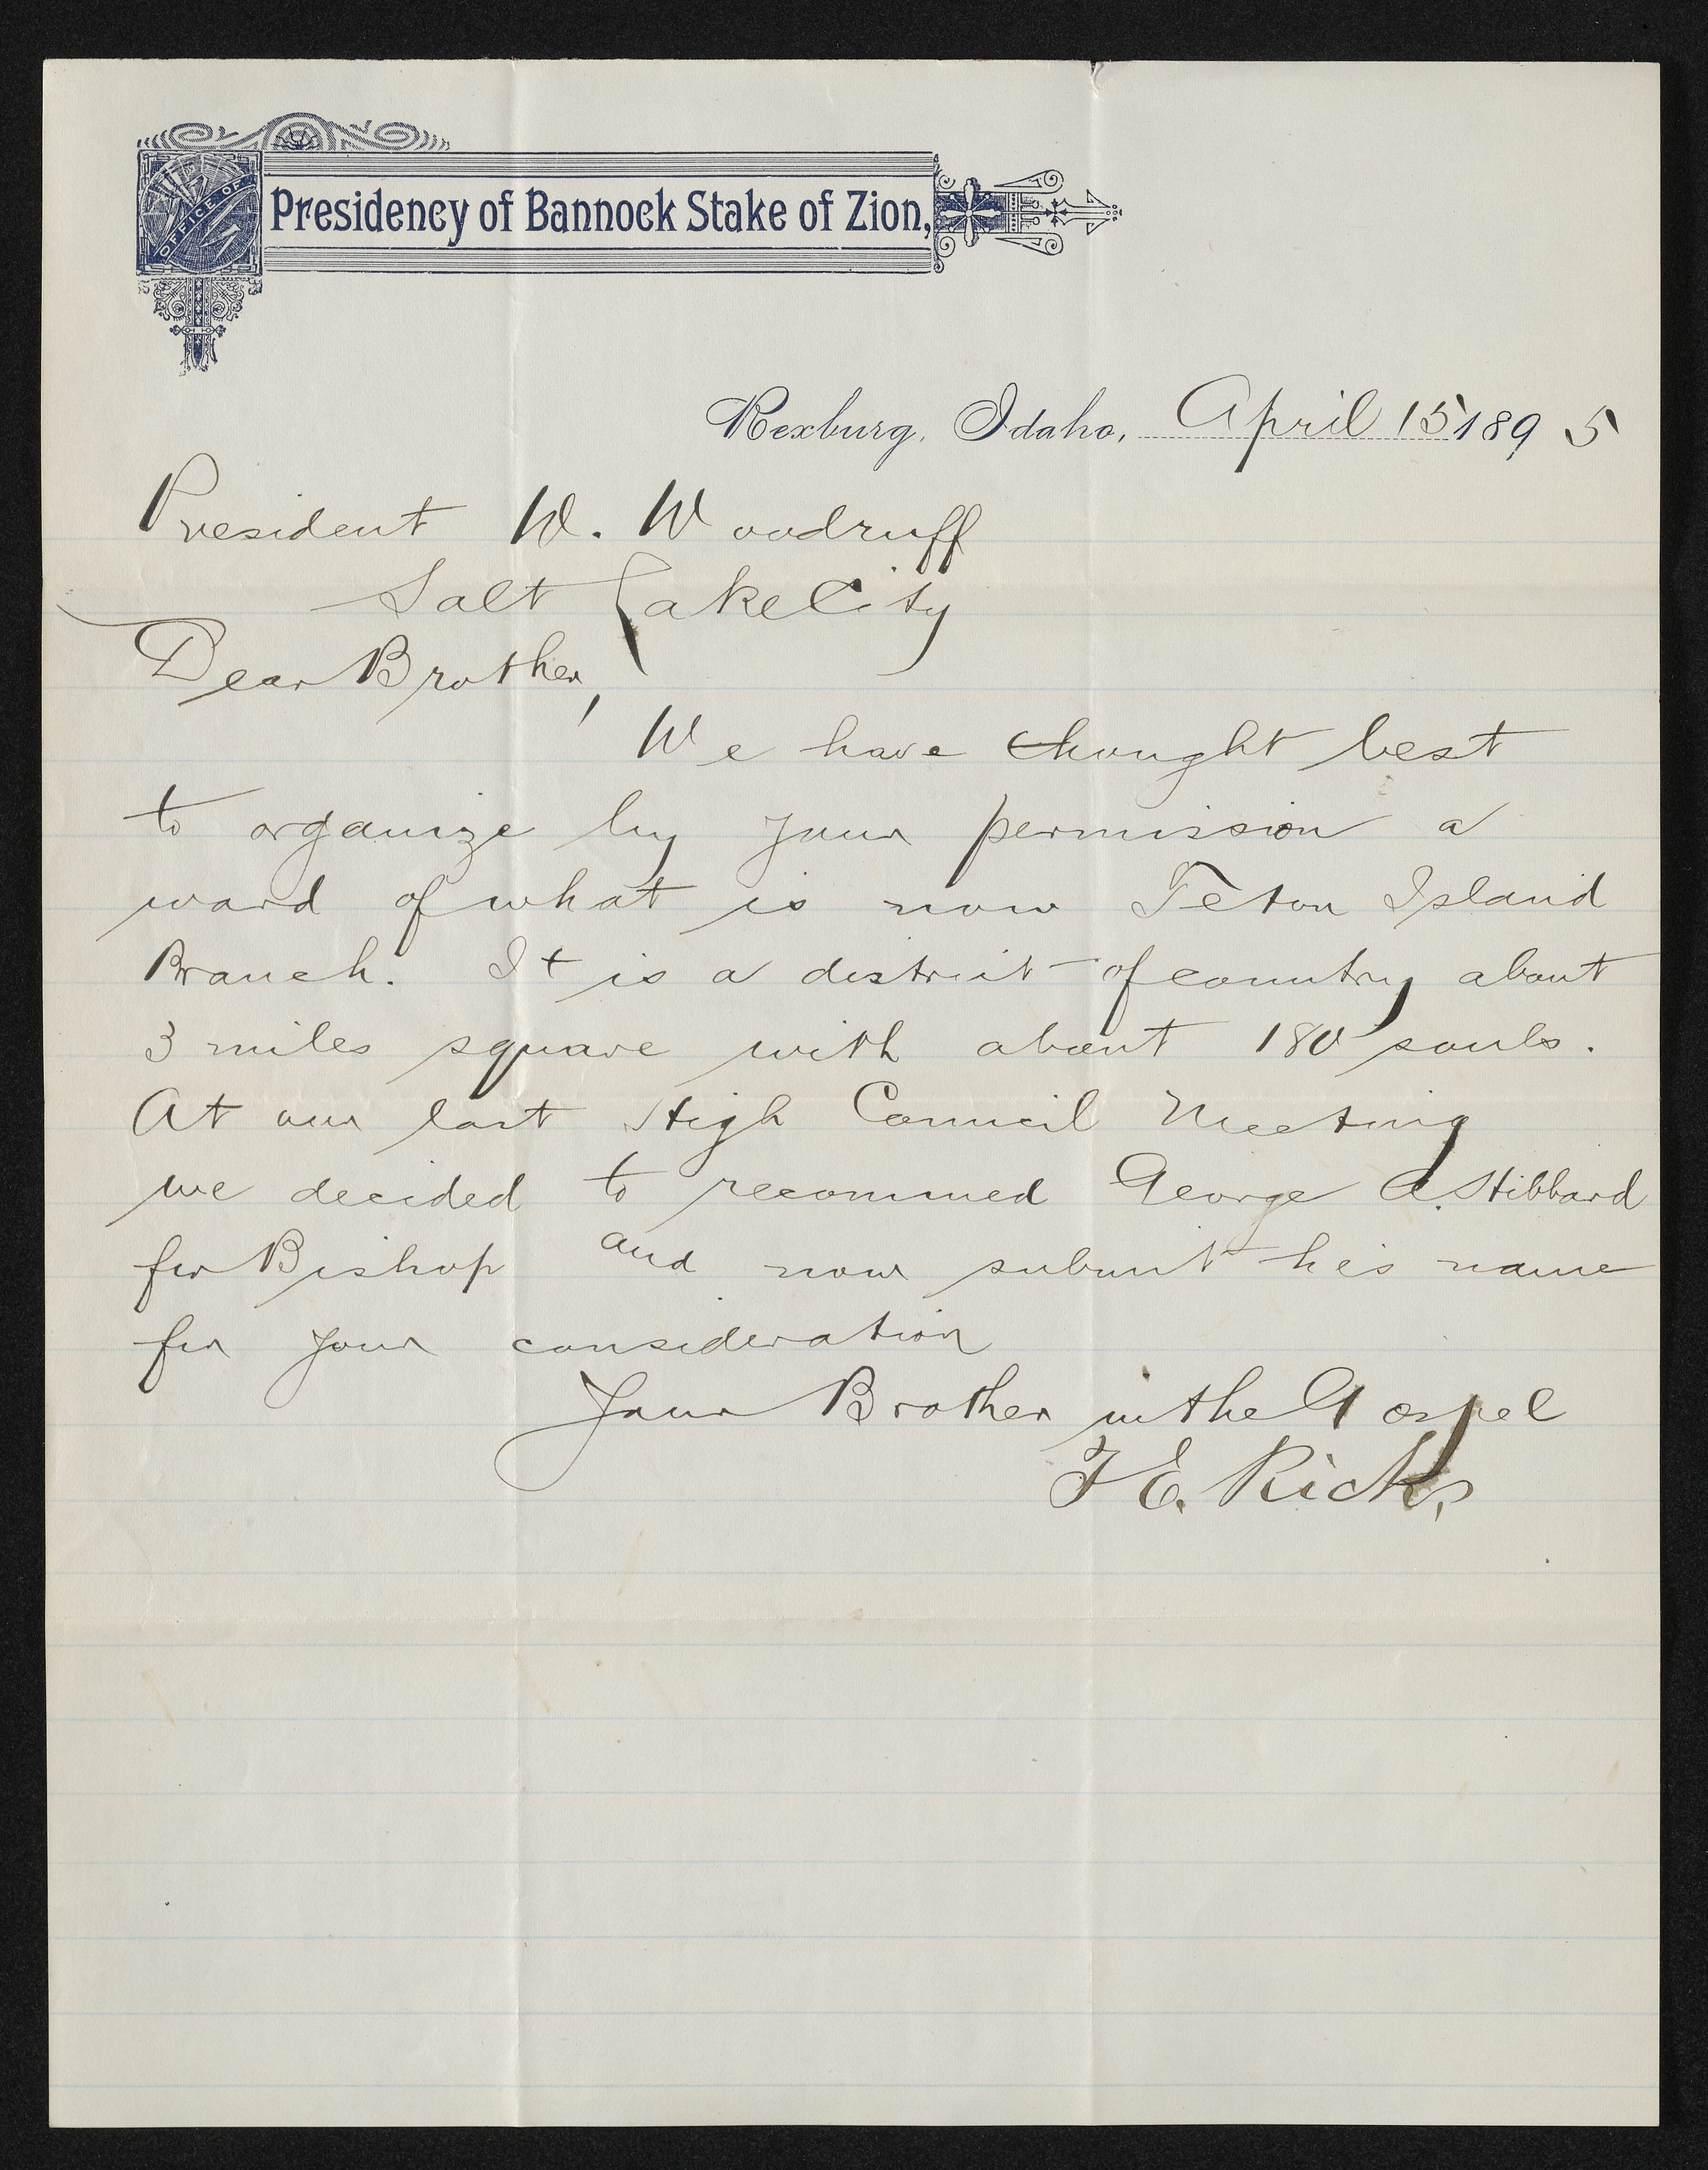 OFFICE OF
Presidency of Bannock Stake of Zion,
Rexburg, Idaho, April 15 1895
President W. Woodruff
Salt Lake City
Dear Brother,
We have thought best
to organize by your permission a
ward of what is now Teton Island
Branch. It is a district of country about
3 miles square with about 180 souls.
At our last High Council Meeting
we decided to recommed George A. Hibbard
for Bishop and now submit his name
for your consideration
Your Brother in the Gospel
T. E. Ricks,